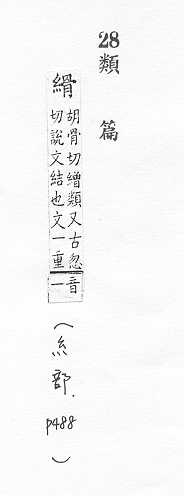 28
類篇
縎
胡骨切繒類又古忽
切說文結也文一重
音一
（糸部.
p488
）